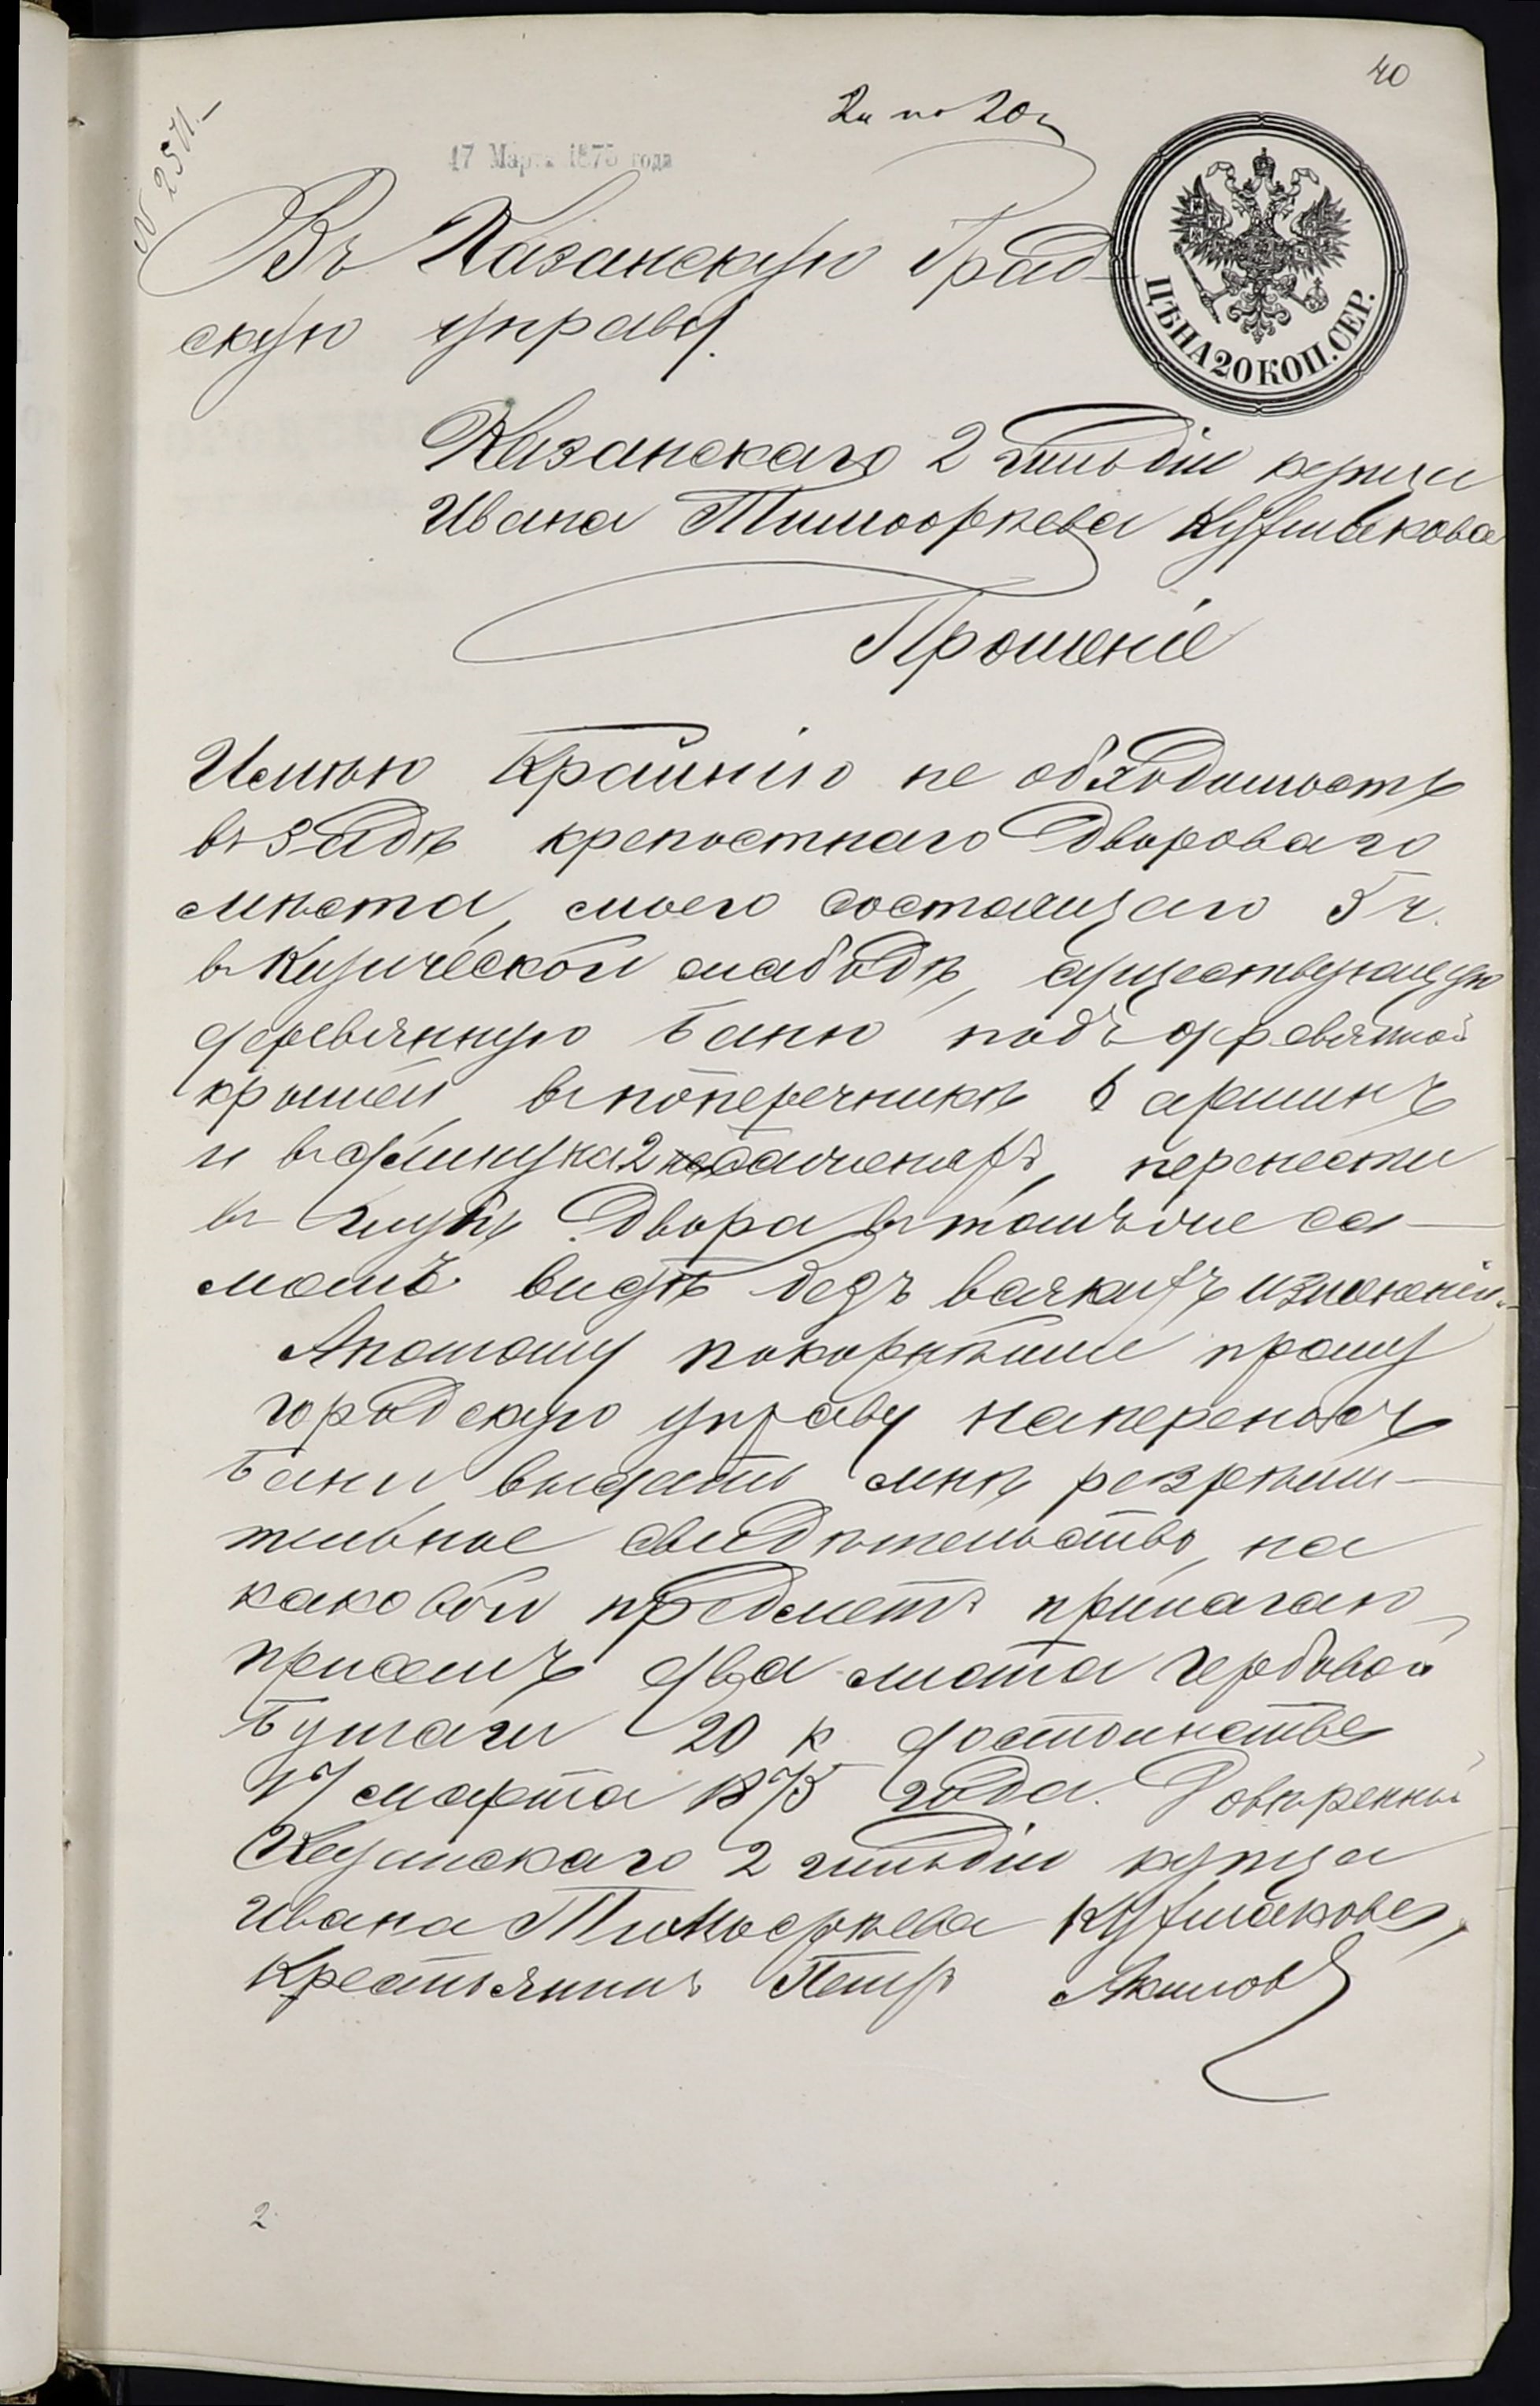 40
2 л по 20 к
№ 2511.
17 Марта 1875 года
Въ Казанскую Град-
скую управу.
ЦѢНА 20 КОП. СЕР.
Казанскаго 2 гильдіи купца
Ивана Тимооркева
Прошеніе
Имѣю Крайнію не обходимость
въ задѣ крепостнаго двороваго
мѣста, моего состоящаго 5 ч.
в Кизической слабодѣ, существующую
деревянную баню подъ деревянной
крышей в поперечникѣ 6 аршинъ
и в длину на 2 саженяхъ, перенести
в глубь двора в томъ же са-
момъ видѣ безъ всякихъ измененій.
Апотому покорнѣише прошу
городскую управу на переносъ
бани выдать мнѣ розрѣши-
тельное свидѣтельство, на
каковой предметъ прилагаю
присемъ два листа гербовой
бумаги 20 к достоинства
17 марта 1875 года. Довѣренный
Казанскаго 2 гильдіи купца
Ивана
Крестьянинъ Петръ Акиловъ
2